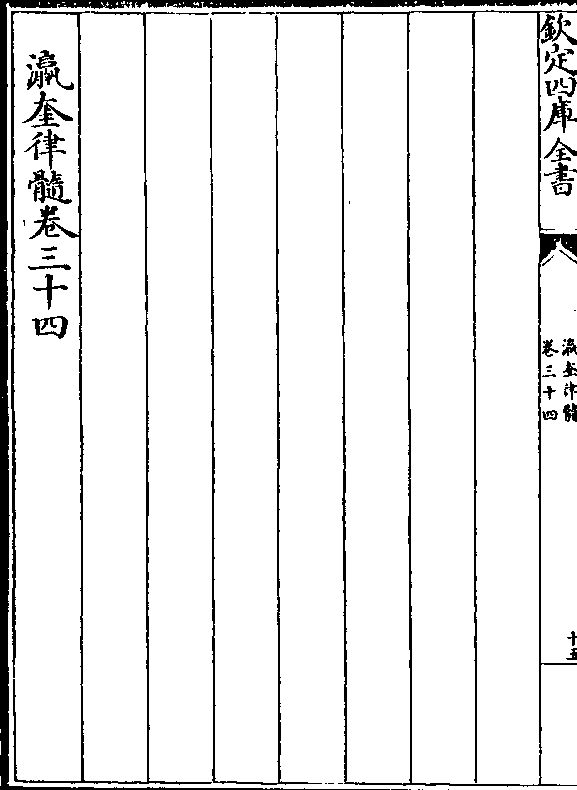 欽定四庫全書
瀛奎律髓
卷三十四
十五
瀛奎律髓卷三十四